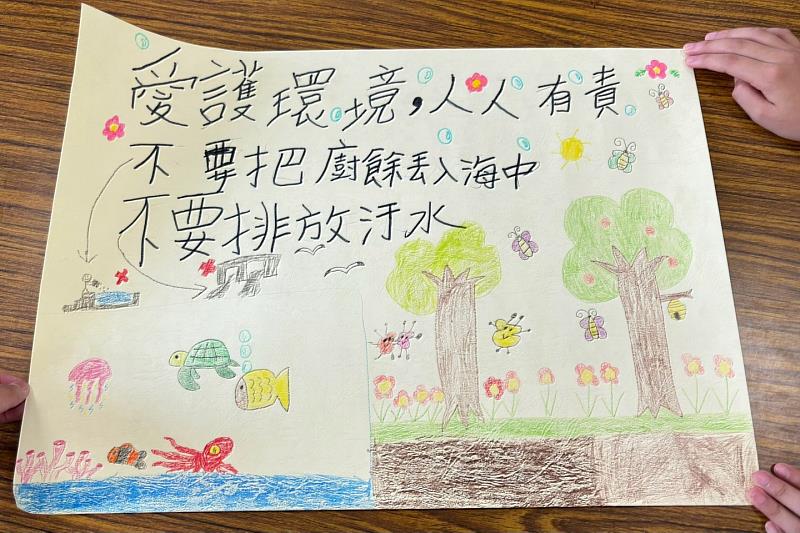 愛護環境，人人有責
不要把廚餘丟入海中
不要排放汙水